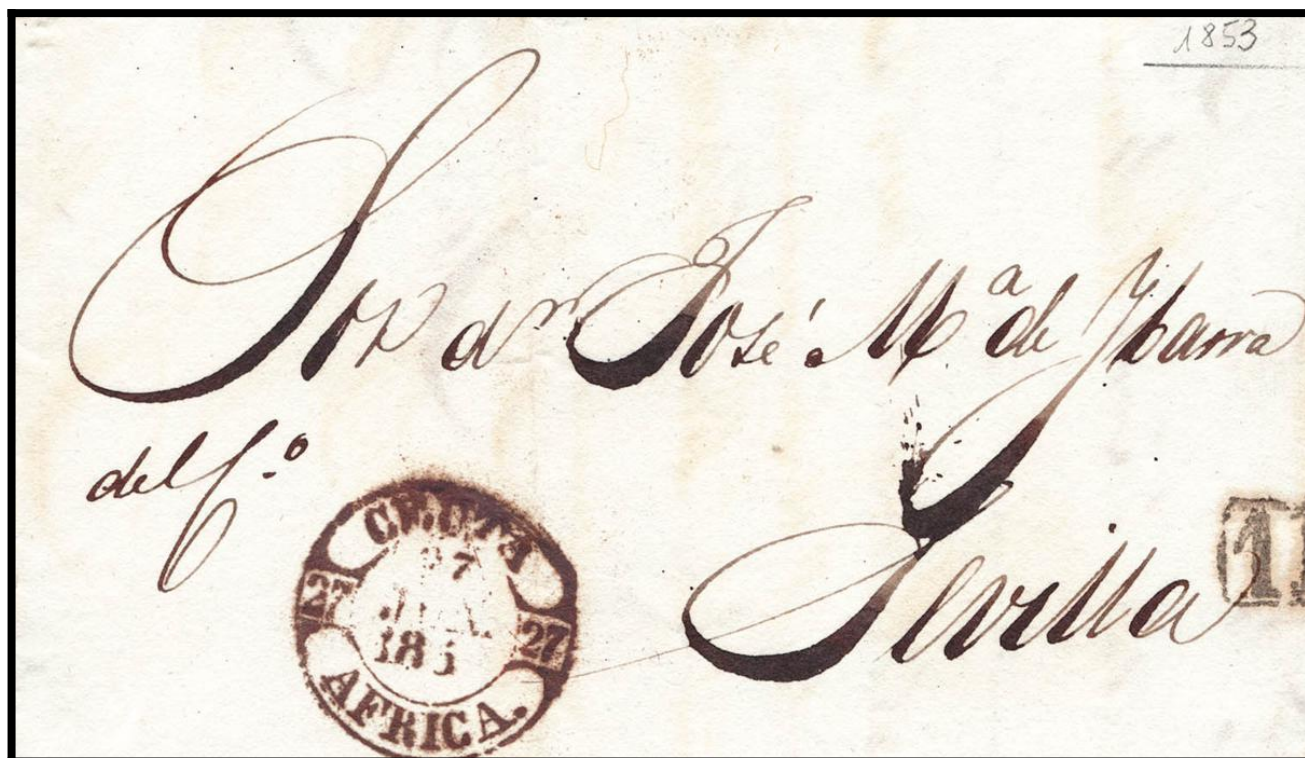 1853
Sor dn José Ma de Ybarra
del Co
Sevilla
CEUTA
27
27
27
185
AFRICA.